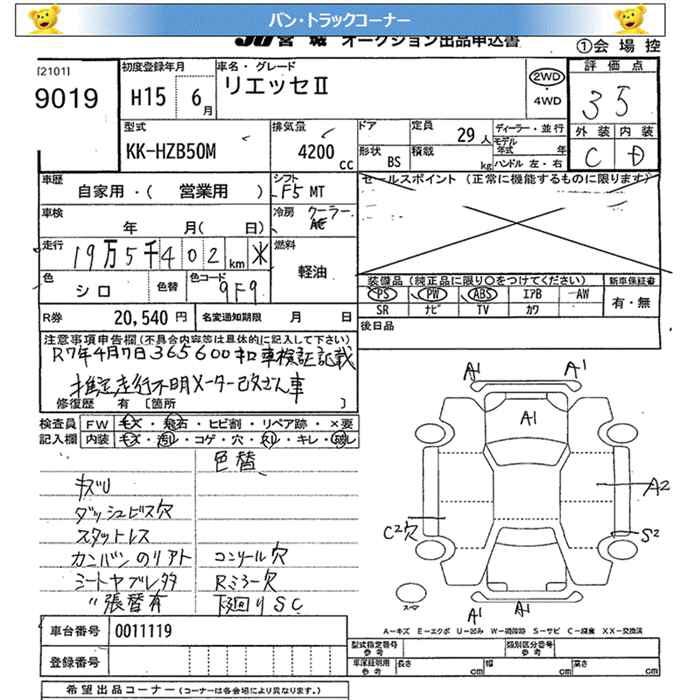 バン・トラックコーナー
JU宮城 オークション出品申込書
①会場控
[2101]
9019
初度登録年月
H15 6月
車名・グレード
リエッセⅡ
2WD
・
4WD
評価点
35
型式
KK-HZB50M
排気量
4200cc
ドア
定員
29人
形状
BS
積載
kg
ディーラー・並行
モデル年式 年
ハンドル 左・右
外装 内装
C D
車歴
自家用・( 営業用 )
シフト
F5 MT
セールスポイント (正常に機能するものに限ります)
車検
年 月( 日)
冷房
クーラー
AC
走行
19万5千402km
燃料
軽油
色
シロ
色替
色コード
9F9
装備品 (純正品に限り○をつけてください)
新車保証書
PS PW ABS エアB AW
SR ナビ TV カワ
有・無
R券
20,540円
名変通知期限 月 日
後日品
注意事項申告欄(不具合内容等は具体的に記入して下さい)
R7年4月7日365600㎞車検証記載
走行不明メーター改ざん車
修復歴 有 [箇所 ]
検査員記入欄
FW キズ・飛石・ヒビ割・リペア跡・×要
内装 キズ・汚レ・コゲ・穴・スリ・キレ・破レ
色替
キズU
ダッシュビス穴
スタットレス
カンバンのリアト
コンソール穴
シートヤブレ
Rミラー穴
〃張替有
下廻りSC
A1 A1
A1
A2
C2穴
S2
スペア
A1 A1 A1
A-キズ E-エクボ U-凹み W-補修跡 S-サビ C-腐食 XX-交換済
車台番号
0011119
登録番号
型式指定番号
参考
類別区分番号
参考
車庫証明用
参考
長さ cm
幅 cm
高さ cm
希望出品コーナー (コーナーは各会場により異なります。)